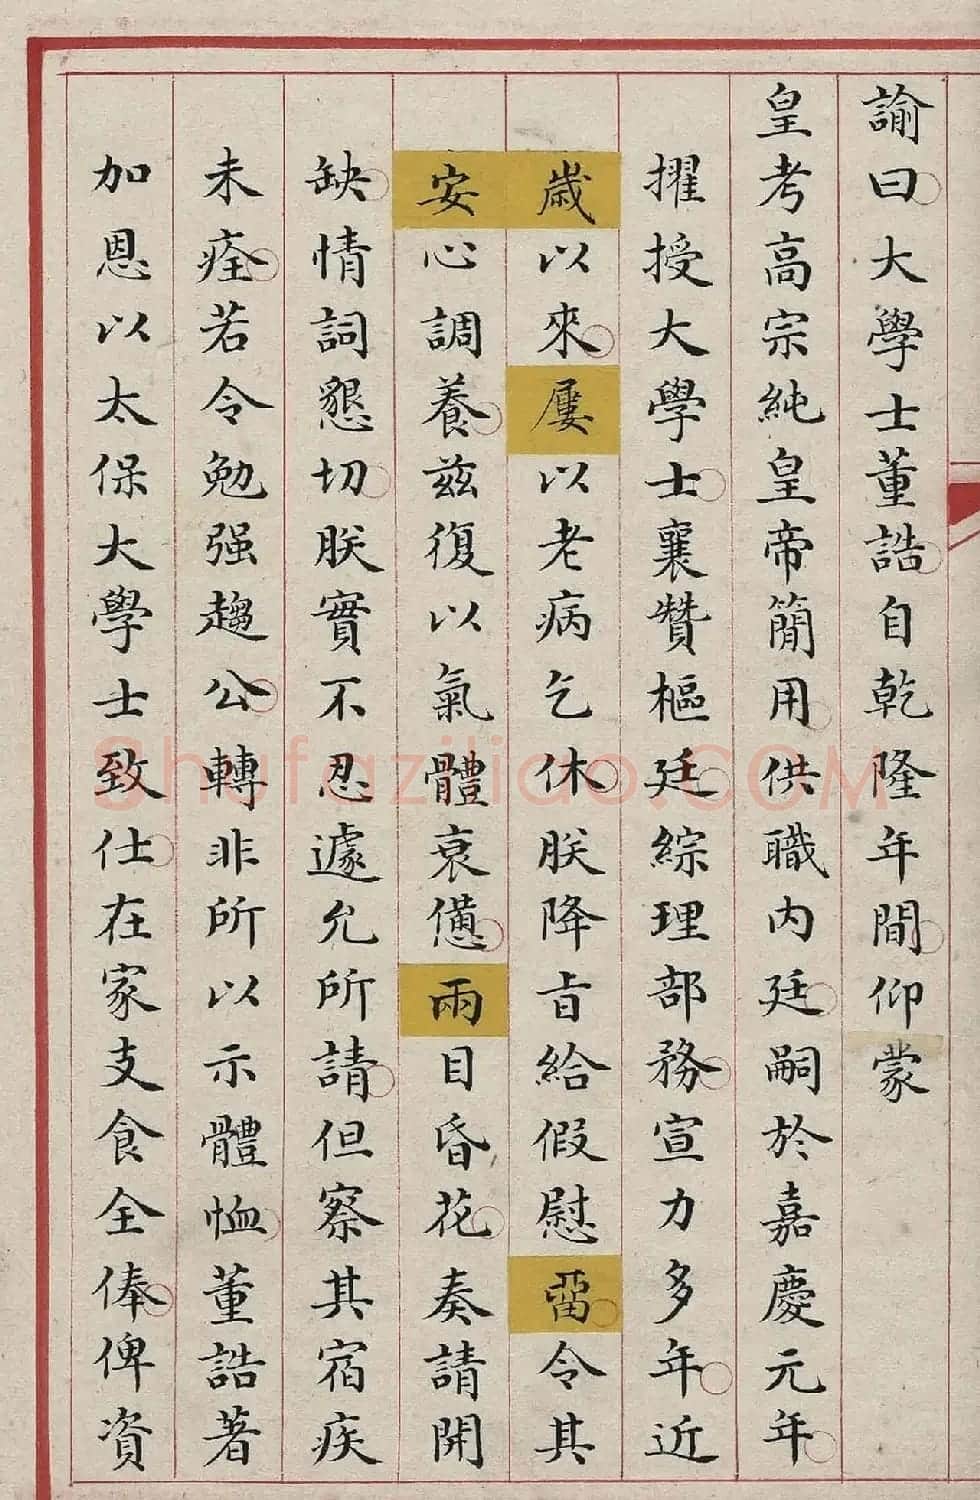 諭曰大學士董誥自乾隆年間仰蒙
皇考高宗純皇帝簡用供職內廷嗣於嘉慶元年
擢授大學士襄贊樞廷綜理部務宣力多年近
歲以來屢以老病乞休朕降旨給假慰畱令其
安心調養茲復以氣體衰憊兩目昏花奏請開
缺情詞懇切朕實不忍遽允所請但察其宿疾
未痊若令勉强趨公轉非所以示體恤董誥著
加恩以太保大學士致仕在家支食全俸俾資
Shufaziliao.COM